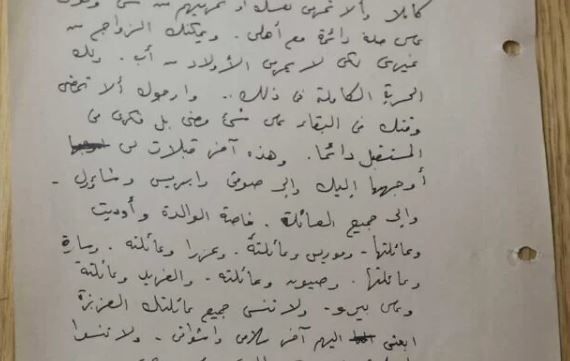 كاملا وألا تحرمي نفسك أو تحرميهم من شئ وكوني
على صلة دائمة مع أهلي. ويمكنك الزواج من
غيري لكي لا يحرم الأولاد من أب. ولك
الحرية الكاملة في ذلك.. وارجوك ألا تمضي
وقتك في البكاء على شئ مضى بل فكري في
المستقبل دائما. وهذه آخر قبلات مني
أوجهها إليك وإلى صوفي وايريس وشاؤول -
وإلى جميع العائلة. خاصة الوالدة وأوديت
وعائلتها - وموريس وعائلته - وعزرا وعائلته. وسارة
وعائلتها. وصيون وعائلته - والفريد وعائلته
ولا تنسي جميع عائلتك العزيزة
ابعثي اليهم آخر سلامي واشواقي - ولا تنسوا